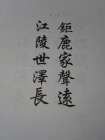 鉅鹿家聲遠
江陵世澤長